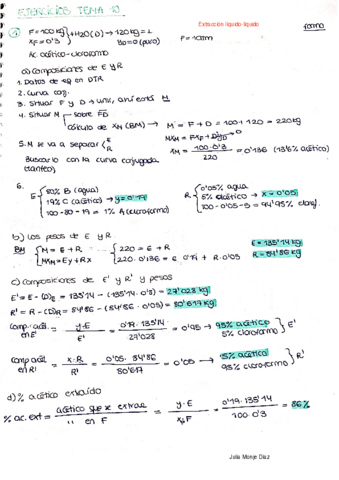 EJERCICIOS TEMA 10
Extracción líquido-líquido
forma
① F = 100 kg } + H2O (D) → 120 kg = L
F = 100 m
XF = 0'3 } y0 = 0 (puro)
Ac. acético-cloroformo
a) composiciones de E y R
1. Datos de eq en DTR
2. Curva conj.
3. Situar F y D → unir, ahí está M
4. Situar M sobre FD
cálculo de XM (BM) → M = F + D = 100 + 120 = 220 kg
MXM = FXF + DyD → 0
5. M se va a separar E R
XM = 100·0'3 / 220 = 0'136 (13'6% acético)
Buscarlo con la curva conjugada
(tanteo)
6.
E { 80% B (agua)
19% C (acético) → y = 0'19
100 - 80 - 19 = 1% A (cloroformo)
R { 0'05% agua
5% acético → x = 0'05
100 - 0'05 - 5 = 94'95% clorof.
b) Los pesos de E y R
BM { M = E + R → { 220 = E + R
MXM = Ey + RX { 220·0.136 = E·0'19 + R·0.05
E = 135'14 kg
R = 84'86 kg
c) composiciones de E' y R' y pesos
E' = E - (D)E = 135'14 - (135'14·0'8) = 27'028 kg
R' = R - (D)R = 84'86 - (84'86·0'05) = 80'617 kg
Comp. acét. en E' = y·E / E' = 0'19·135'14 / 27'028 = 0'95 → 95% acético
5% cloroformo } E'
Comp acét en R' = x·R / R' = 0'05·84'86 / 80'617 = 0'05 → 5% acético
95% cloroformo } R'
d) % acético extraído
% ac. ext = acético que se extrae / " en F = y·E / xF·F = 0'19·135'14 / 100·0'3 = 86%
Julia Monje Díaz